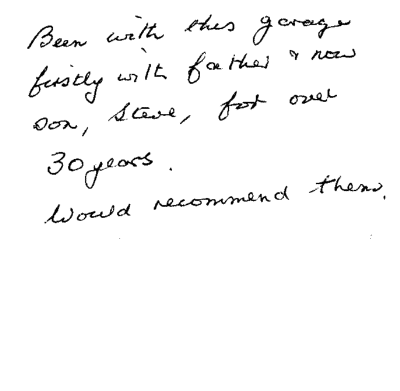 Been with this garage
firstly with father & now
son, Steve, for over
30 years.
Would recommend them.